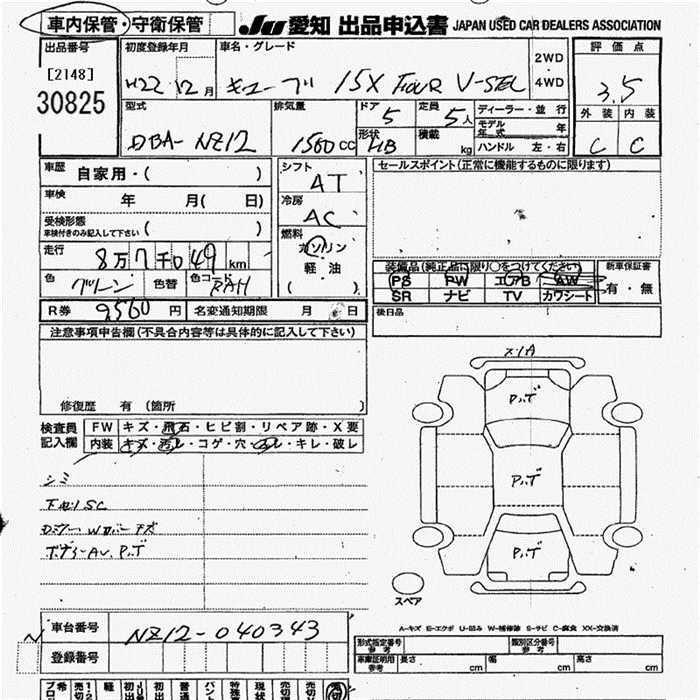 車内保管・守衛保管
JU 愛知 出品申込書 JAPAN USED CAR DEALERS ASSOCIATION
出品番号
[2148]
30825
初度登録年月
H22 12月
車名・グレード
キューブ 15X FOUR V-SEL
2WD・4WD
評価点
3.5
外装 内装
C C
型式
DBA-NZ12
排気量
1500CC
ドア 5
形状 HB
定員 5人
積載 kg
ディーラー・並行
モデル年式 年
ハンドル 左・右
車歴 自家用・( )
車検 年 月( 日)
受検形態
車検付きのみ記入して下さい ( )
走行 8万7千049km
色 グリーン 色替 色コード RAH
シフト AT
冷房 AC
燃料 ガソリン・軽油
( )
R券 9560円 名変通知期限 月 日
セールスポイント(正常に機能するものに限ります)
装備品(純正品に限り○をつけてください) 新車保証書
PS PW エアB AW 有・無
SR ナビ TV カワシート
後日品
注意事項申告欄(不具合内容等は具体的に記入して下さい)
修復歴 有 (箇所 )
検査員記入欄 FW キズ・飛石・ヒビ割・リペア跡・X要
内装 キズ・汚レ・コゲ・穴・スレ・キレ・破レ
シミ
下廻りSC
ボディーAU. P.T
X1A
P.T
P.T
P.T
スペア
A-キズ E-エクボ U-凹み W-補修跡 S-サビ C-腐食 XX-交換済
車台番号 NZ12-040343
登録番号
形式指定番号 参考 類別区分番号 参考
車庫証明用 参考 長さ cm 幅 cm 高さ cm